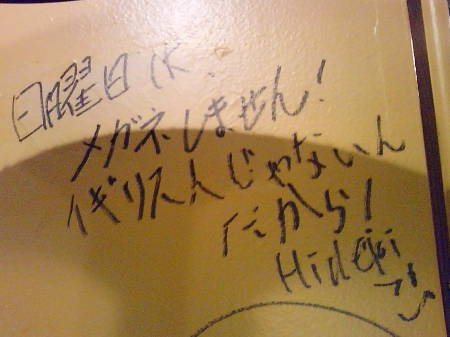 日曜日は、
メガネしません!
イギリス人じゃないん
だから!
Hideki